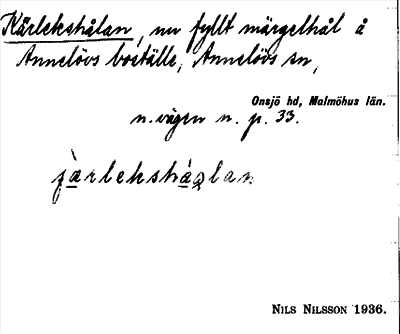 Kärlekshålan, nu fyllt märgelhål å
Annelövs boställe, Annelövs sn,
Onsjö hd, Malmöhus län.
n. vägen n. p. 33.
NILS NILSSON 1936.